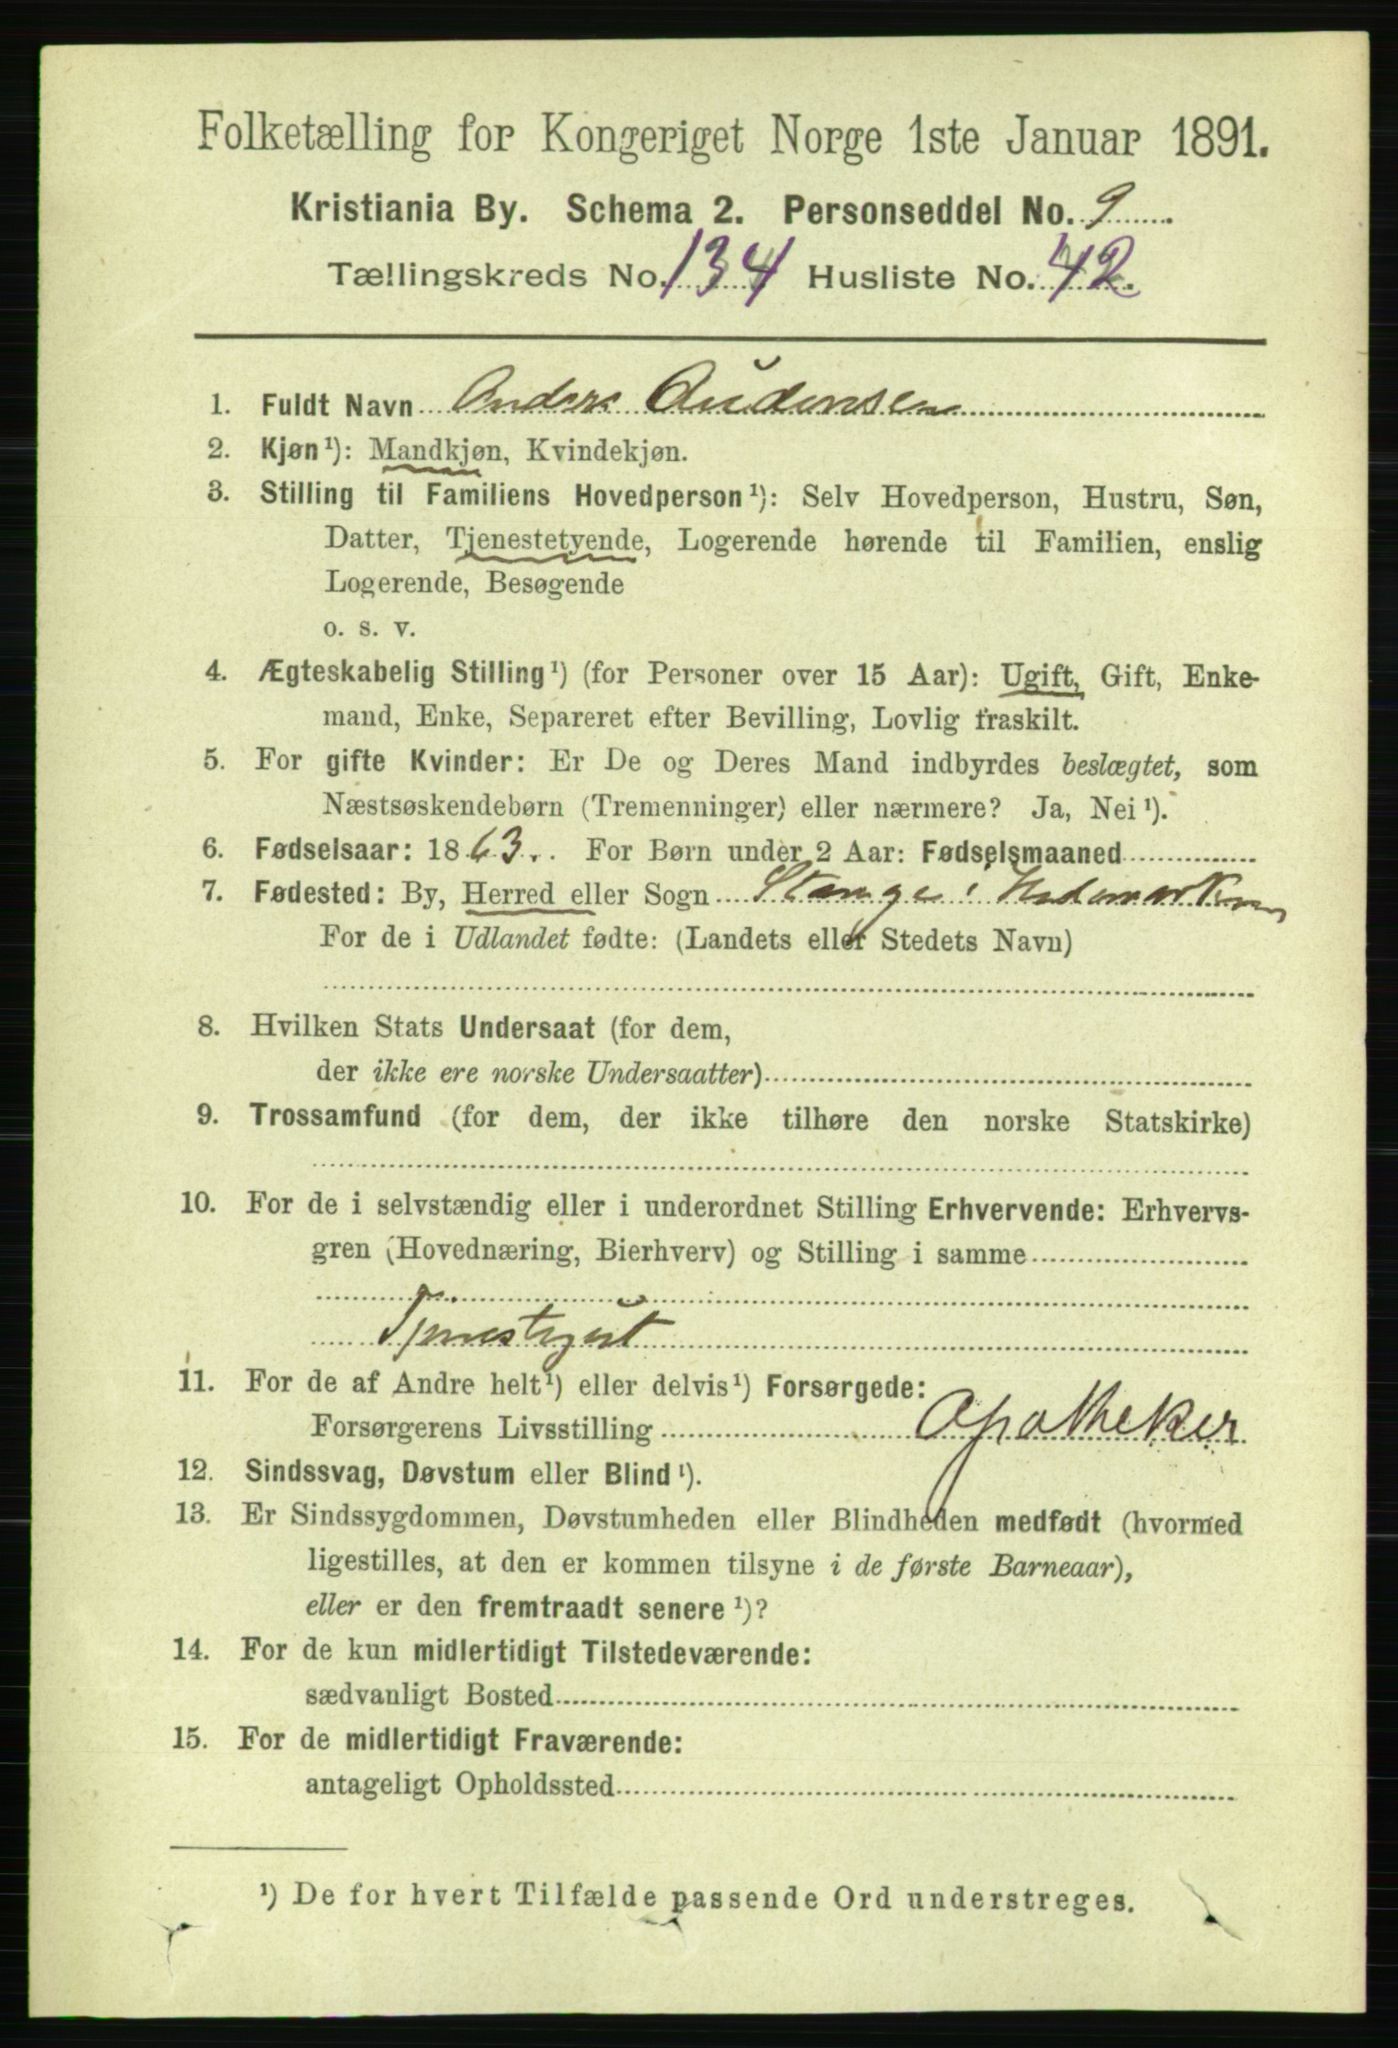 Folketælling for Kongeriget Norge 1ste Januar 1891.
Kristiania By. Schema 2. Personseddel No. 9
Tællingskreds No. 134 Husliste No. 42.
1. Fuldt Navn Anders Audensen
2. Kjøn¹): Mandkjøn, Kvindekjøn.
3. Stilling til Familiens Hovedperson¹): Selv Hovedperson, Hustru, Søn,
Datter, Tjenestetyende, Logerende hørende til Familien, enslig
Logerende, Besøgende
o. s. v.
4. Ægteskabelig Stilling¹) (for Personer over 15 Aar): Ugift, Gift, Enke-
mand, Enke, Separeret efter Bevilling, Lovlig fraskilt.
5. For gifte Kvinder: Er De og Deres Mand indbyrdes beslægtet, som
Næstsøskendebørn (Tremenninger) eller nærmere? Ja, Nei¹).
6. Fødselsaar: 1863. For Børn under 2 Aar: Fødselsmaaned
7. Fødested: By, Herred eller Sogn Stange i Hedemarken
For de i Udlandet fødte: (Landets eller Stedets Navn)
8. Hvilken Stats Undersaat (for dem,
der ikke ere norske Undersaatter)
9. Trossamfund (for dem, der ikke tilhøre den norske Statskirke)
10. For de i selvstændig eller i underordnet Stilling Erhvervende: Erhvervs-
gren (Hovednæring, Bierhverv) og Stilling i samme
Tjenestegut
11. For de af Andre helt¹) eller delvis¹) Forsørgede:
Forsørgerens Livsstilling Apotheker
12. Sindssvag, Døvstum eller Blind¹).
13. Er Sindssygdommen, Døvstumheden eller Blindheden medfødt (hvormed
ligestilles, at den er kommen tilsyne i de første Barneaar),
eller er den fremtraadt senere¹)?
14. For de kun midlertidigt Tilstedeværende:
sædvanligt Bosted
15. For de midlertidigt Fraværende:
antageligt Opholdssted
¹) De for hvert Tilfælde passende Ord understreges.